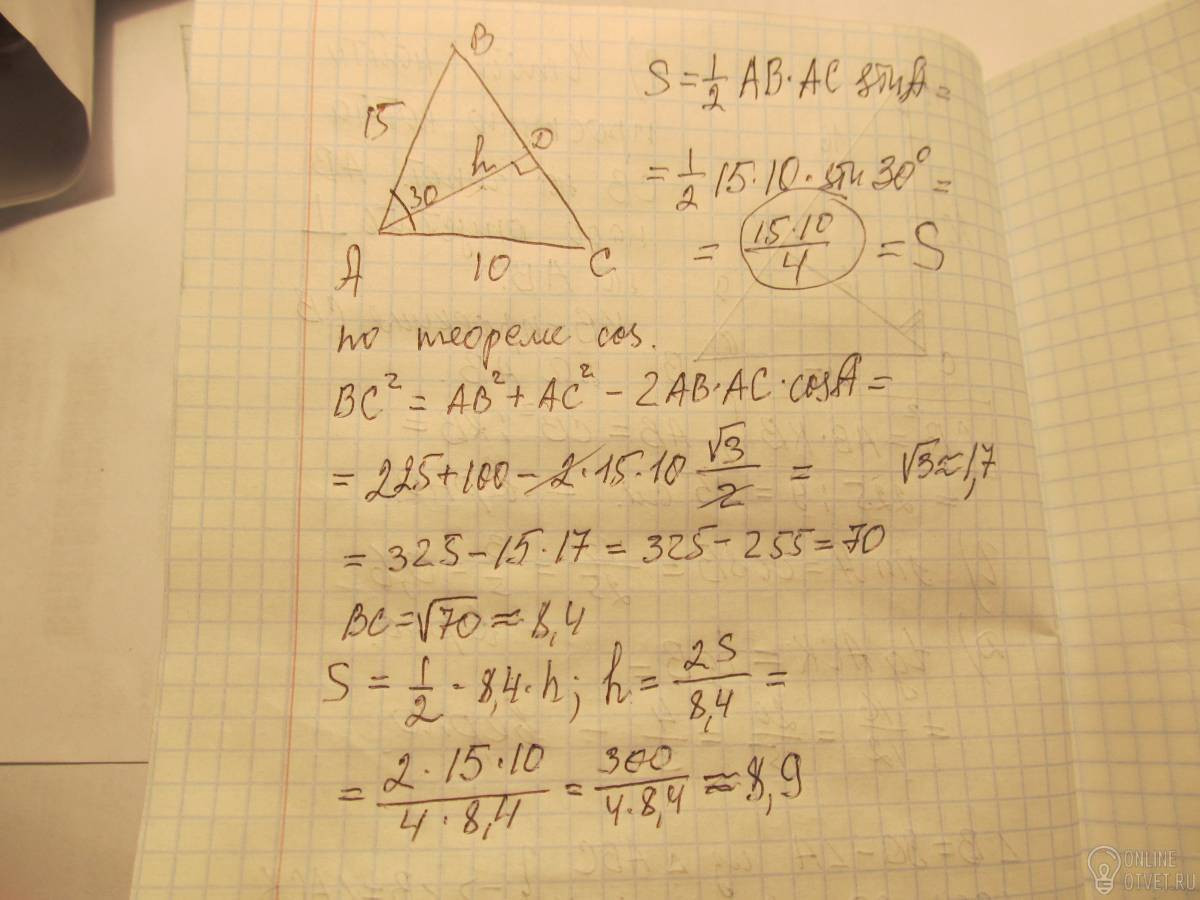 B
15
h
D
30
A
10
C
S = 1/2 AB·AC sin A =
= 1/2 15·10·sin 30° =
= 15·10/4 = S
по теореме cos.
BC² = AB² + AC² - 2AB·AC·cosA =
= 225+100 - 2·15·10 √3/2 =
√3≈1,7
= 325 - 15·17 = 325 - 255 = 70
BC = √70 ≈ 8,4
S = 1/2 · 8,4·h; h = 2S/8,4 =
= 2·15·10/4·8,4 = 300/4·8,4 ≈ 8,9
ONLINE
OTVET.RU